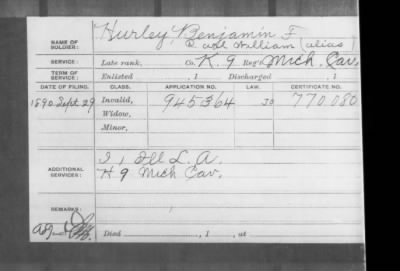 Hurley, Benjamin F.
NAME OF SOLDIER:
William (alias)
SERVICE: Late rank, Co. K. 9 Reg't Mich. Cav.
TERM OF SERVICE: Enlisted , 1 Discharged , 1
DATE OF FILING. CLASS. APPLICATION NO. LAW. CERTIFICATE NO.
1890. Sept 29 Invalid, 945364 770.080
Widow,
Minor,
ADDITIONAL SERVICES: I 1 Ill L. A.
H 9 Mich Cav.
REMARKS:
Died , 1 , at